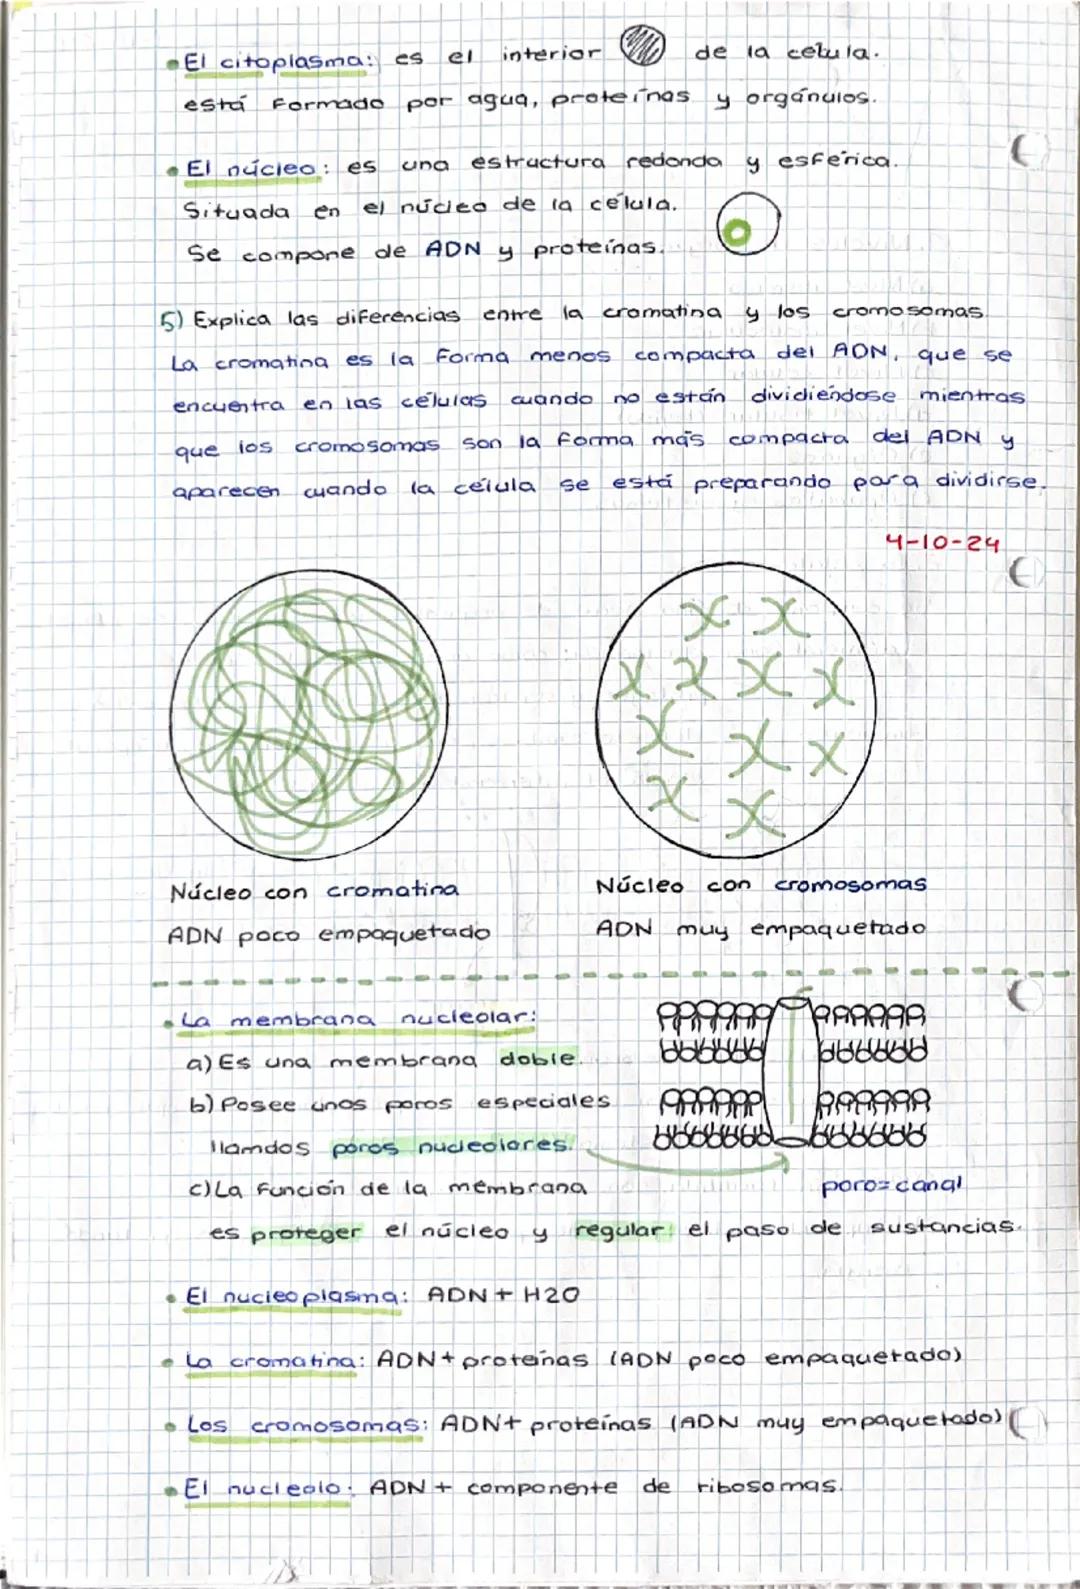 El citoplasma: es el interior de la celula.
está Formado por agua, proteínas y orgánulos.
El núcleo: es una estructura redonda y esférica.
Situada en el núcleo de la célula.
Se compone de ADN y proteínas.
5) Explica las diferencias entre la cromatina y los cromosomas
La cromatina es la Forma menos compacta del ADN, que se
encuentra en las células cuando no están dividiéndose mientras
que los cromosomas son la forma más compacta del ADN y
aparecen cuando la célula se está preparando para dividirse.
4-10-24
Núcleo con cromatina
ADN poco empaquetado
Núcleo con cromosomas
ADN muy empaquetado
La membrana nucleolar:
a) Es una membrana doble.
b) Posee unos poros especiales
llamdos poros nucleolores.
c) La Función de la membrana
poro=canal
es proteger el núcleo y regular el paso de sustancias.
El nucleoplasma: ADN + H2O
La cromatina: ADN + proteínas (ADN poco empaquetado)
Los cromosomas: ADN + proteínas (ADN muy empaquetado)
El nucleolo: ADN + componente de ribosomas.